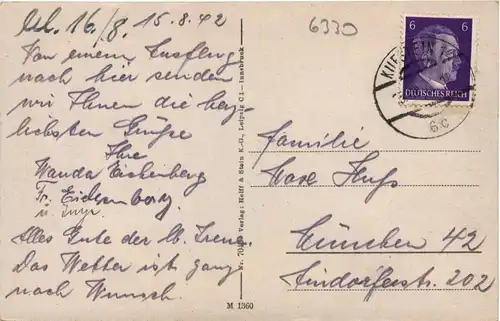 16./8. 15.8.42
6330
Von einem Ausflug
nach hier senden
wir Ihnen die herz-
lichsten Grüße
Ihre
Wanda Eschenberg
Fr.
u.
Alles Gute der lb. Irene.
Das Wetter ist ganz
nach Wunsch.
Nr. Verlag: Helff & Stein K.-G., Leipzig C 1 - Innsbruck
M 1360
6 6
DEUTSCHES REICH
KUFSTEIN
Familie
Max
München 42
Lindorferstr. 202